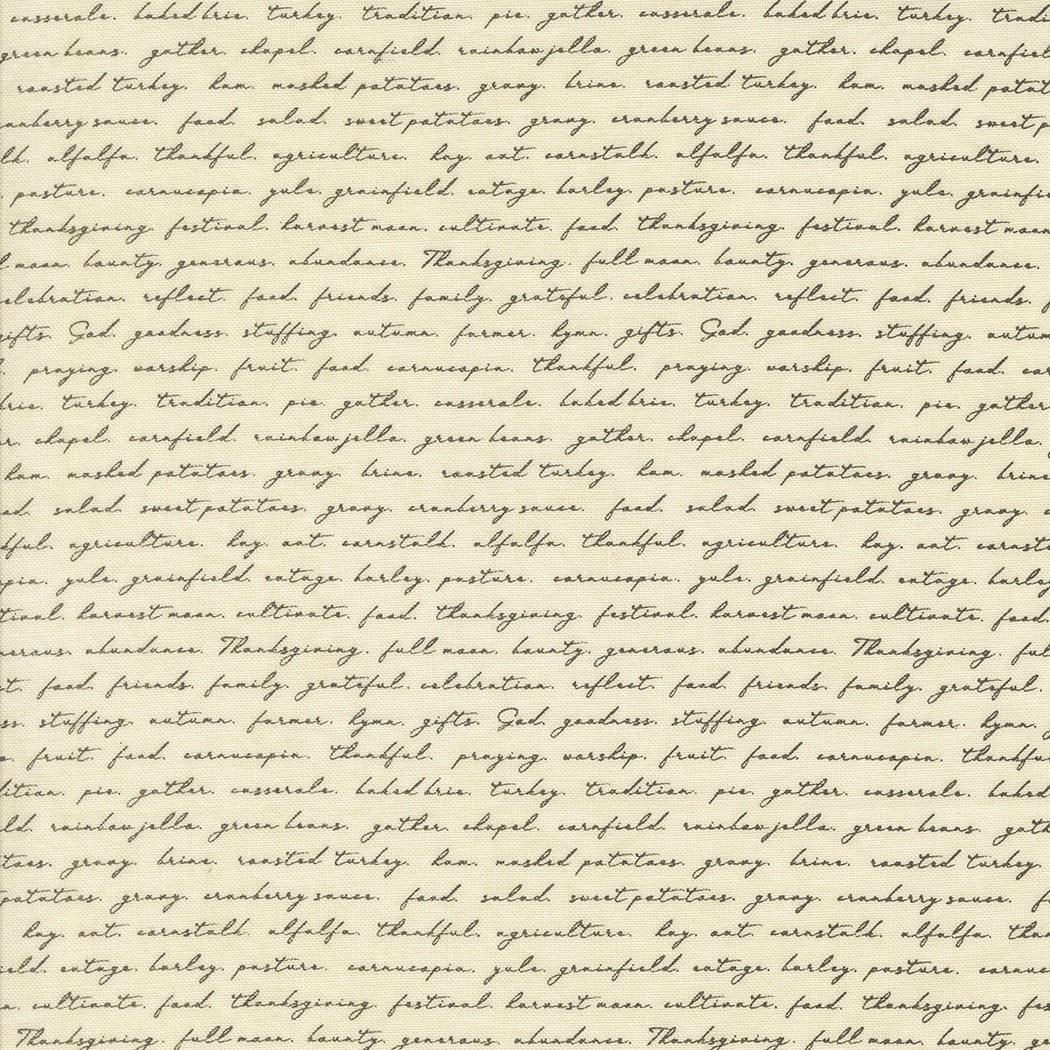 casserole. baked brie. turkey. tradition. pie. gather. casserole. baked brie. turkey. tradi
green beans. gather. chapel. cornfield. rainbow jello. green beans. gather. chapel. cornfiel
roasted turkey. ham. mashed potatoes. gravy. brine. roasted turkey. ham. mashed potat
anberry sauce. food. salad. sweet potatoes. gravy. cranberry sauce. food. salad. sweet p
lk. alfalfa. thankful. agriculture. hay. oat. cornstalk. alfalfa. thankful. agriculture.
. pasture. cornucopia. yule. grainfield. eatage. barley. pasture. cornucopia. yule. grainfie
thanksgiving. festival. harvest moon. cultivate. food. thanksgiving. festival. harvest moon
l moon. bounty. generous. abundance. Thanksgiving. full moon. bounty. generous. abundance.
elebration. reflect. food. friends. family. grateful. celebration. reflect. food. friends. f
gifts. God. goodness. stuffing. autumn. farmer. hymn. gifts. God. goodness. stuffing. autum
. praying. worship. fruit. food. cornucopia. thankful. praying. worship. fruit. food. cor
brie. turkey. tradition. pie. gather. casserole. baked brie. turkey. tradition. pie. gather
r. chapel. cornfield. rainbow jello. green beans. gather. chapel. cornfield. rainbow jello.
ham. mashed potatoes. gravy. brine. roasted turkey. ham. mashed potatoes. gravy. brine
od. salad. sweet potatoes. gravy. cranberry sauce. food. salad. sweet potatoes. gravy. c
kful. agriculture. hay. oat. cornstalk. alfalfa. thankful. agriculture. hay. oat. cornsta
pia. yule. grainfield. eatage. barley. pasture. cornucopia. yule. grainfield. eatage. barley
tival. harvest moon. cultivate. food. thanksgiving. festival. harvest moon. cultivate. food.
nerous. abundance. Thanksgiving. full moon. bounty. generous. abundance. Thanksgiving. ful
ct. food. friends. family. grateful. celebration. reflect. food. friends. family. grateful.
ss. stuffing. autumn. farmer. hymn. gifts. God. goodness. stuffing. autumn. farmer. hymn. g
. fruit. food. cornucopia. thankful. praying. worship. fruit. food. cornucopia. thankfu
dition. pie. gather. casserole. baked brie. turkey. tradition. pie. gather. casserole. baked
ld. rainbow jello. green beans. gather. chapel. cornfield. rainbow jello. green beans. gath
toes. gravy. brine. roasted turkey. ham. mashed potatoes. gravy. brine. roasted turkey.
potatoes. gravy. cranberry sauce. food. salad. sweet potatoes. gravy. cranberry sauce. f
hay. oat. cornstalk. alfalfa. thankful. agriculture. hay. oat. cornstalk. alfalfa. than
eld. eatage. barley. pasture. cornucopia. yule. grainfield. eatage. barley. pasture. cornuc
n. cultivate. food. thanksgiving. festival. harvest moon. cultivate. food. thanksgiving. fes
Thanksgiving. full moon. bounty. generous. abundance. Thanksgiving. full moon. bounty. ge